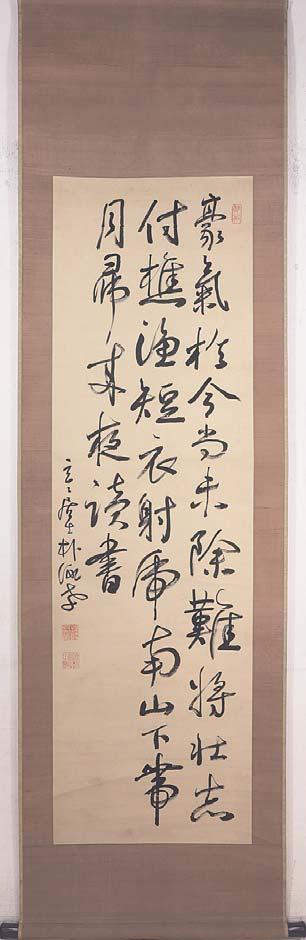 豪氣於今尚未除難將壮志
付樵漁短衣射虎南山下帯
月帰来夜読書
朴泳孝